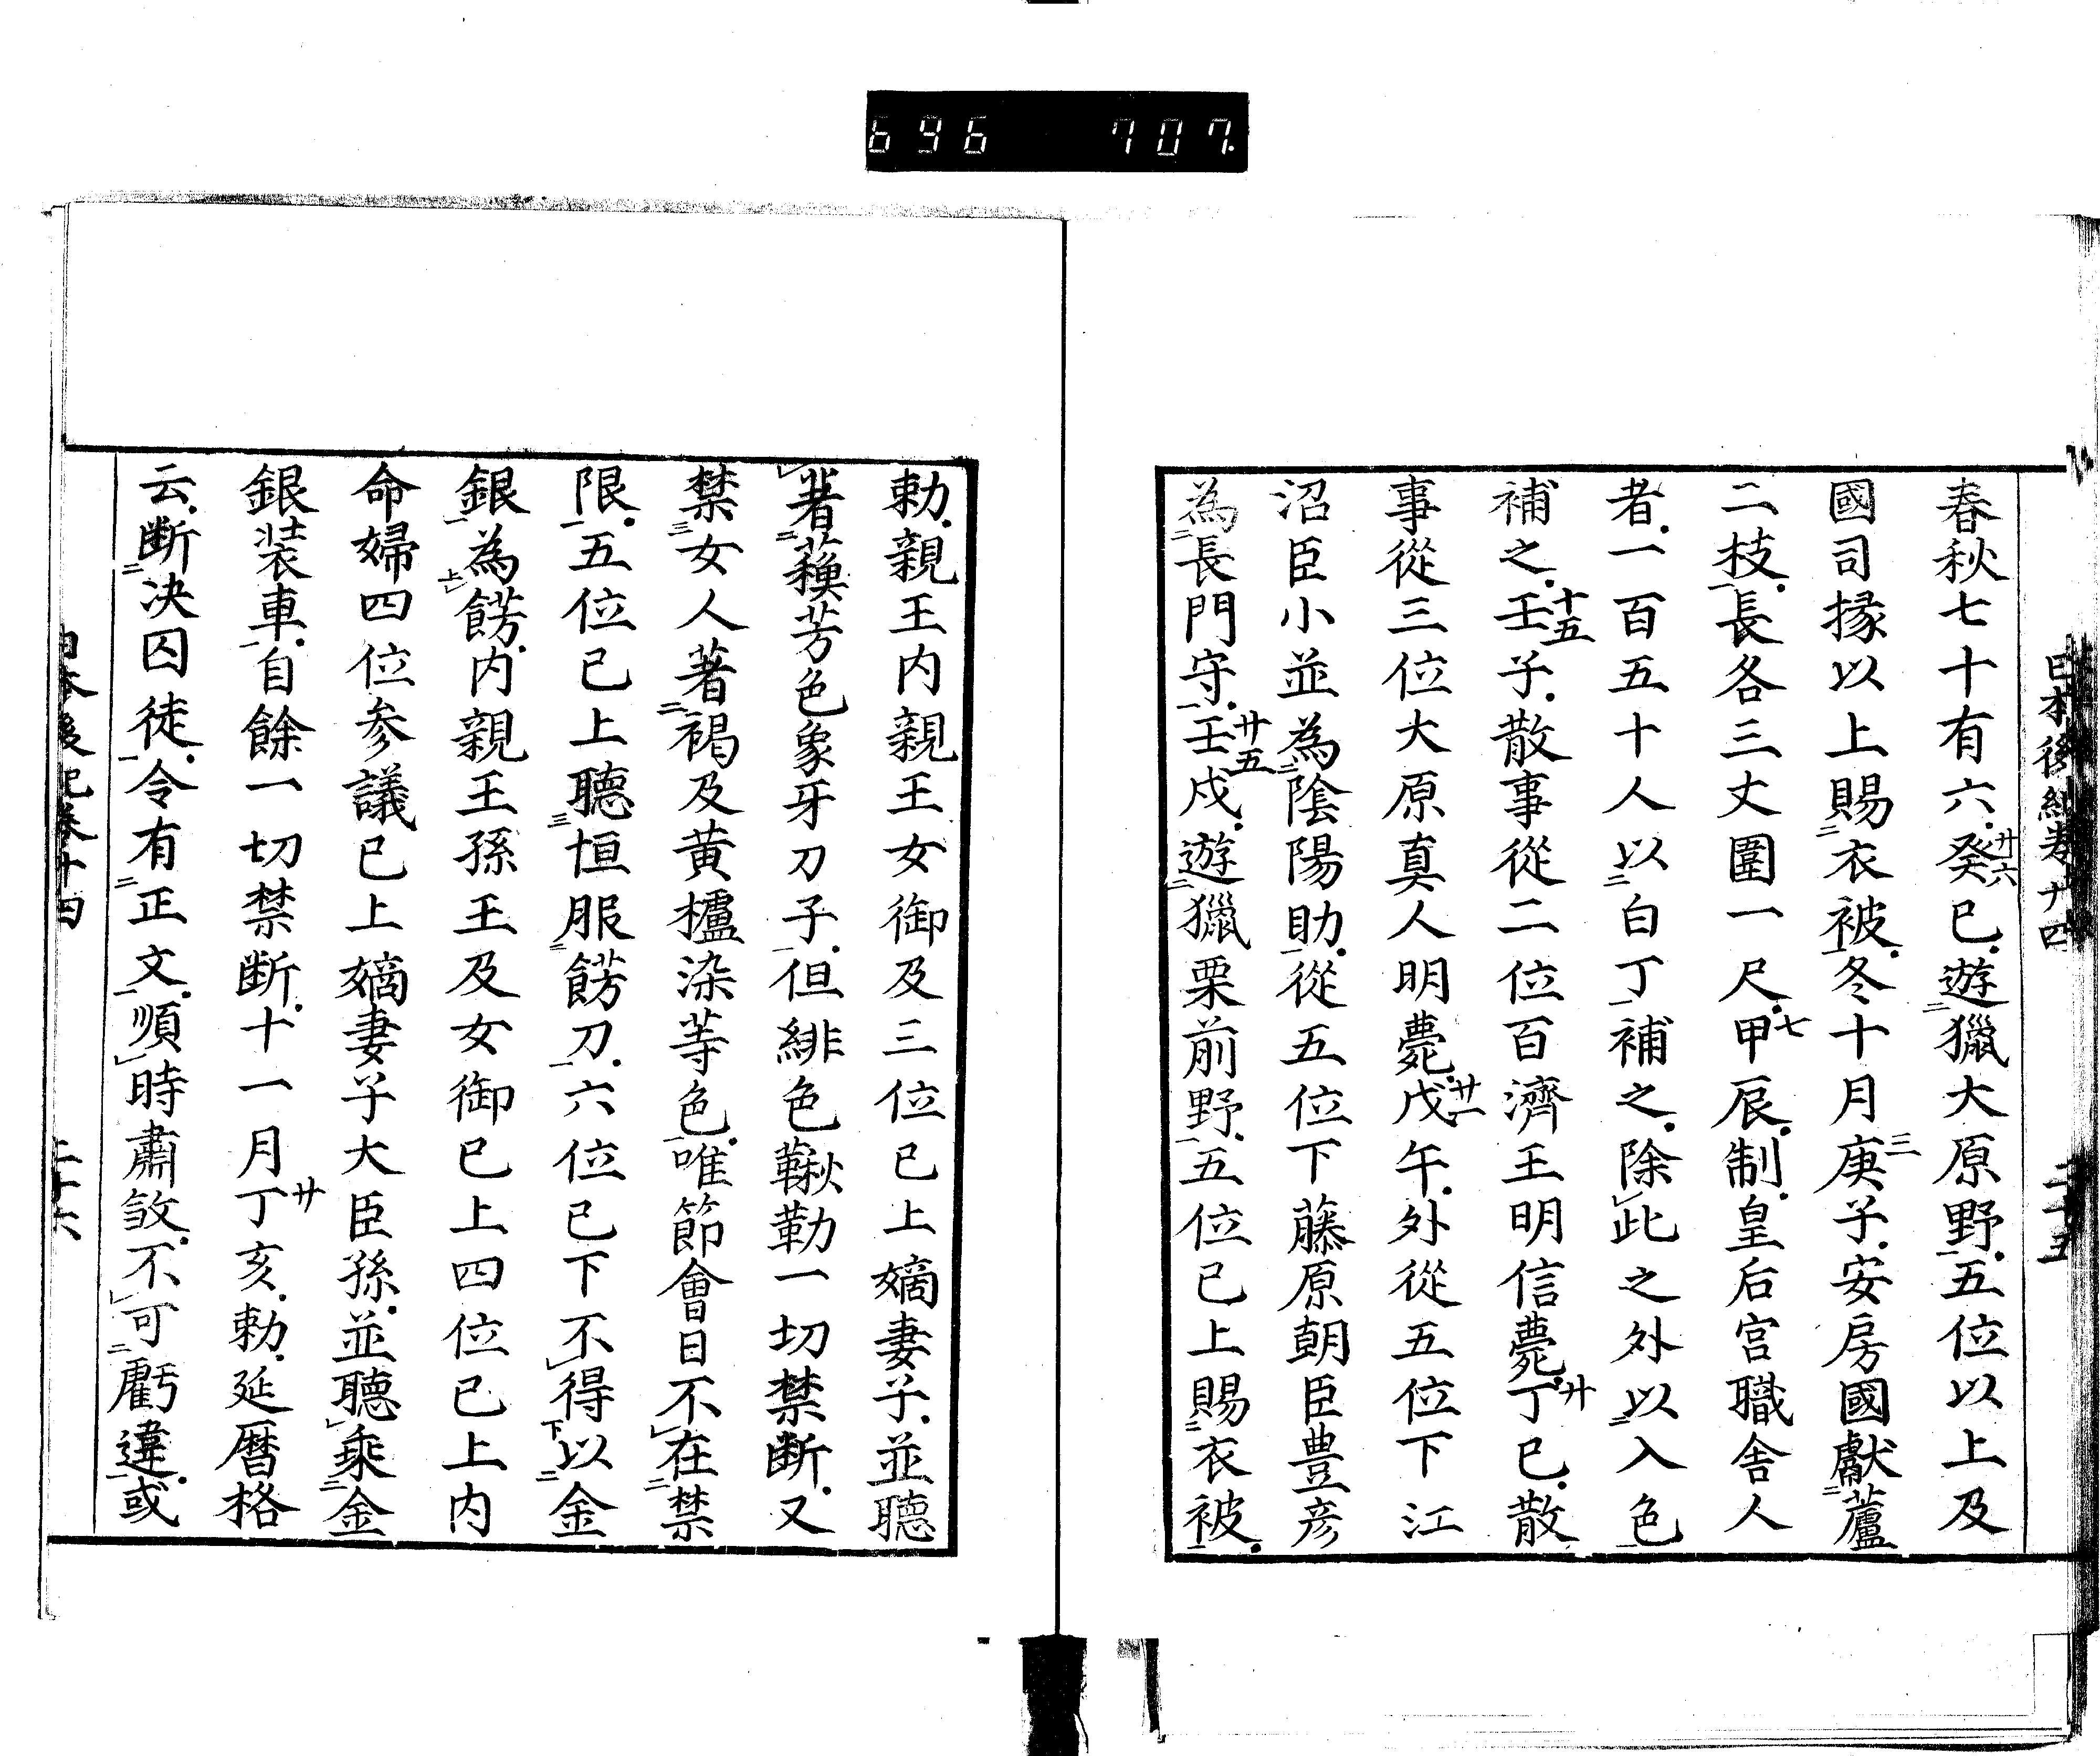 696 707.
日本後紀卷十四 二十五
春秋七十有六癸巳遊獵大原野五位以上及
國司掾以上賜衣被冬十月庚子安房國獻蘆
二枝長各三丈圍一尺甲辰制皇后宮職舍人
者一百五十人以白丁補之除此之外以入色
補之壬子散事從二位百濟王明信薨丁巳散
事從三位大原真人明薨戊午外從五位下江
沼臣小並為陰陽助從五位下藤原朝臣豊彦
為長門守壬戌遊獵栗前野五位已上賜衣被
勅親王内親王女御及三位已上嫡妻子並聽
著蘓芳色象牙刀子但緋色鞦勒一切禁断又
禁女人著褐及黄櫨染等色唯節會日不在禁
限五位已上聽恒服餝刀六位已下不得以金
銀為餝内親王孫王及女御已上四位已上内
命婦四位参議已上嫡妻子大臣孫並聽乗金
銀装車自餘一切禁断十一月丁亥勅延暦格
云断决囚徒令有正文順時肅敓不可虧違或
日本後紀卷十四 二十六